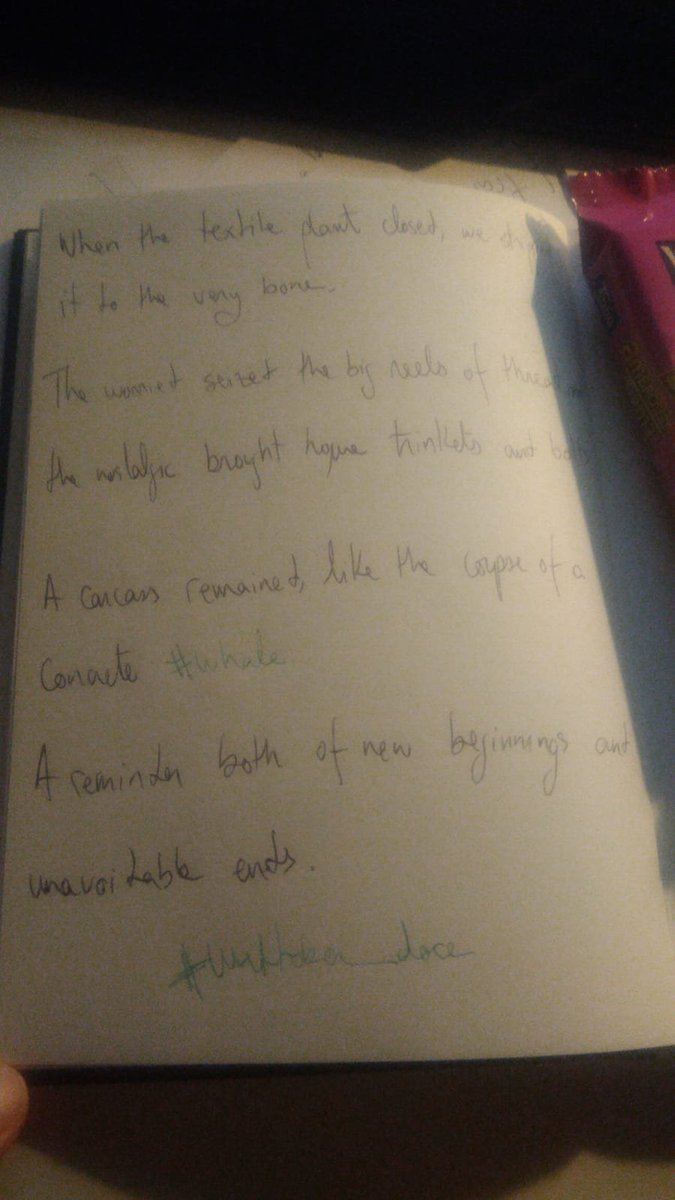 When the textile plant closed, we
it to the very bone.
The worried seized the big reels of
the nostalgic brought home trinkets and
A carcass remained, like the corpse of a
Concrete #whale.
A reminder both of new beginnings and
unavoidable ends.